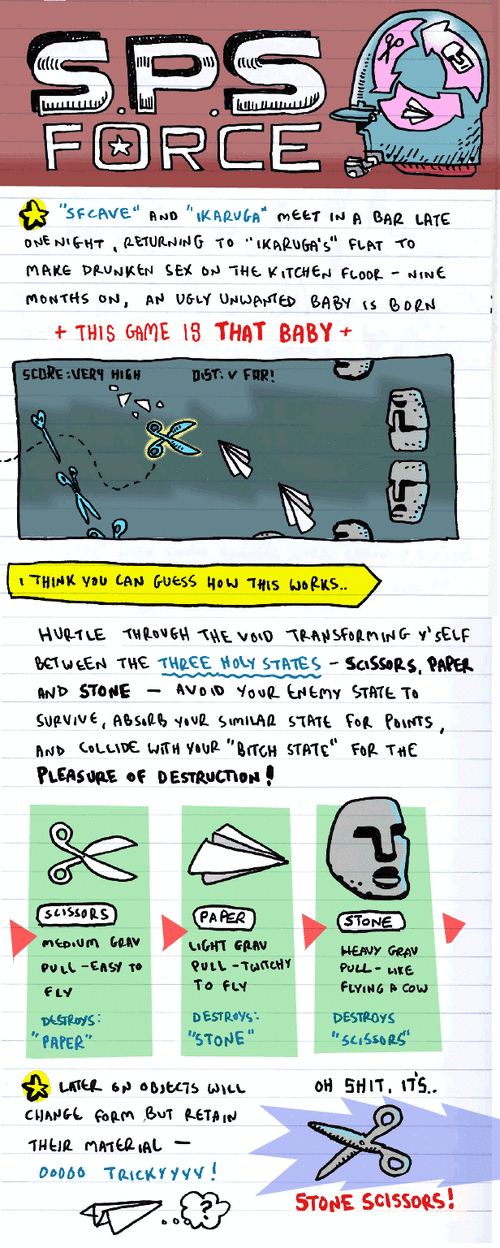 S.P.S
FORCE
"SFCAVE" AND "IKARUGA" MEET IN A BAR LATE
ONE NIGHT, RETURNING TO "IKARUGA'S" FLAT TO
MAKE DRUNKEN SEX ON THE KITCHEN FLOOR - NINE
MONTHS ON, AN UGLY UNWANTED BABY IS BORN
+ THIS GAME IS THAT BABY +
SCORE: VERY HIGH DIST: V FAR!
I THINK YOU CAN GUESS HOW THIS WORKS..
HURTLE THROUGH THE VOID TRANSFORMING Y'SELF
BETWEEN THE THREE HOLY STATES - SCISSORS, PAPER
AND STONE - AVOID YOUR ENEMY STATE TO
SURVIVE, ABSORB YOUR SIMILAR STATE FOR POINTS,
AND COLLIDE WITH YOUR "BITCH STATE" FOR THE
PLEASURE OF DESTRUCTION!
SCISSORS
MEDIUM GRAV
PULL - EASY TO
FLY
DESTROYS:
"PAPER"
PAPER
LIGHT GRAV
PULL - TWITCHY
TO FLY
DESTROYS:
"STONE"
STONE
HEAVY GRAV
PULL - LIKE
FLYING A COW
DESTROYS
"SCISSORS"
LATER ON OBJECTS WILL
CHANGE FORM BUT RETAIN
THEIR MATERIAL -
OOOOO TRICKYYYY!
?
OH SHIT, IT'S..
STONE SCISSORS!